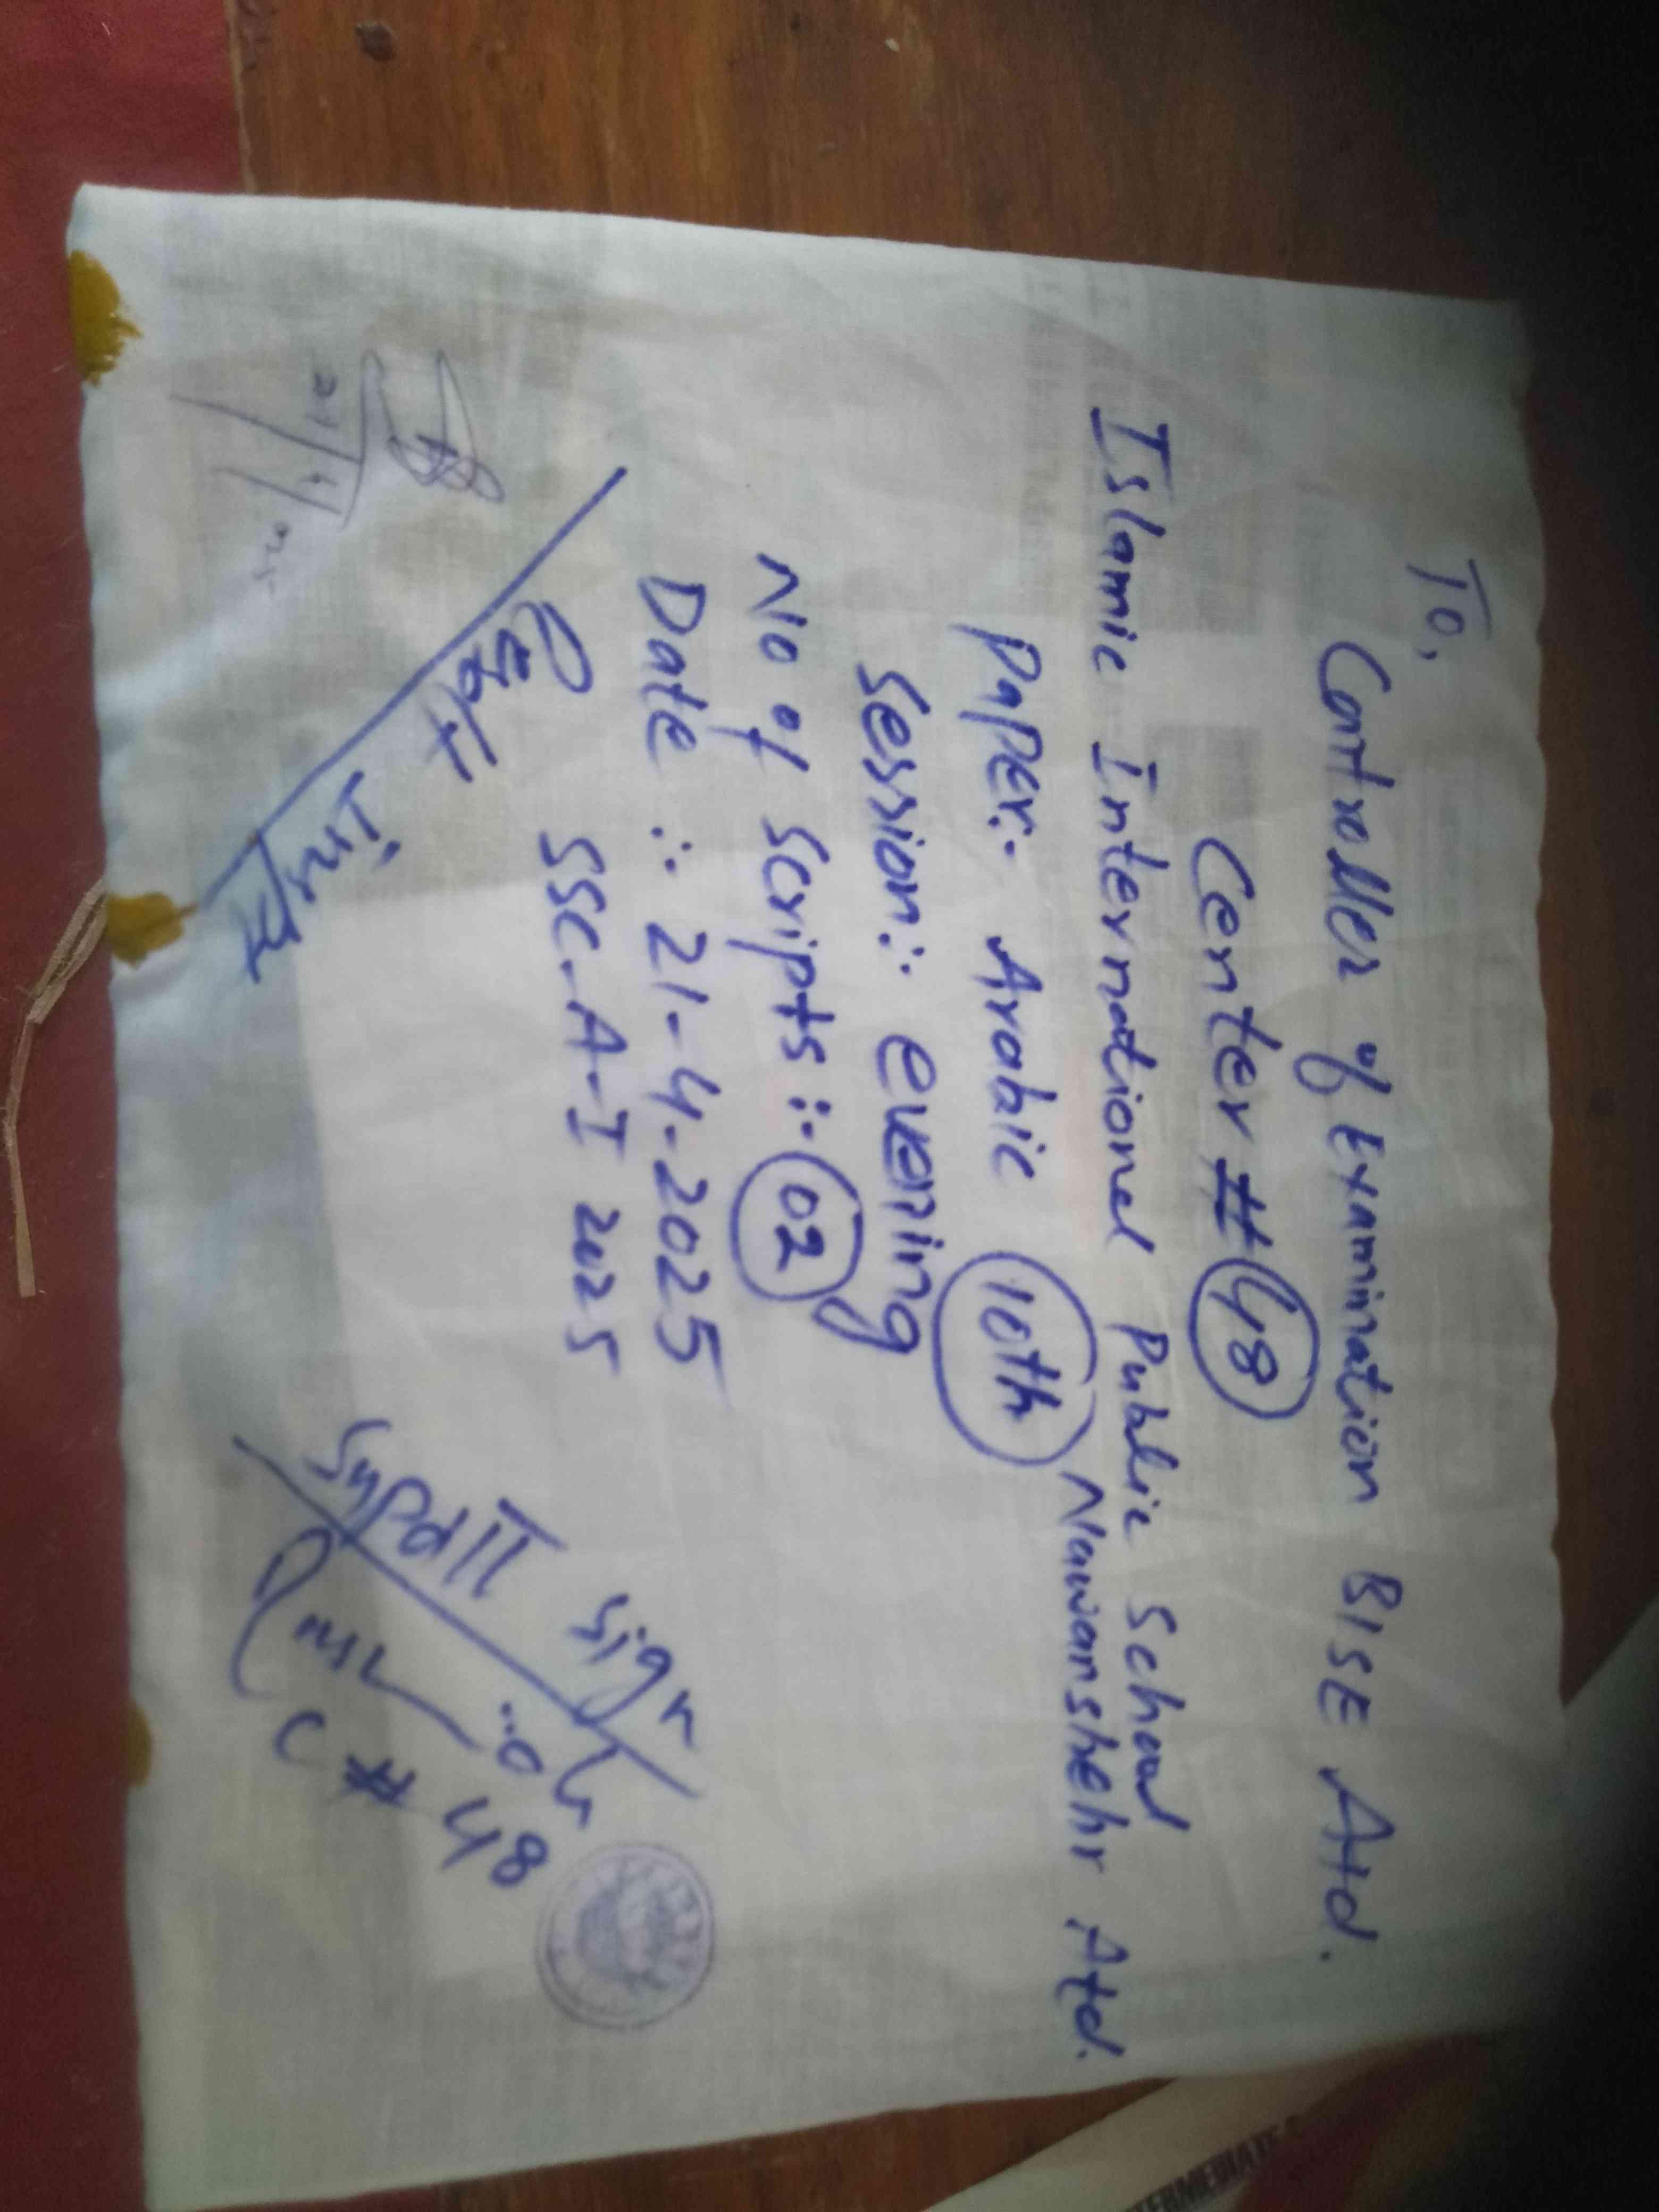 To,
Controller of Examination BISE Atd.
Center # 48
Islamic International Public School
Nawanshehr Atd.
Paper:- Arabic 10th
Session:- evening
No of Scripts:- 02
Date :- 21-4-2025
SSC-A-I 2025
21/4/2025
C # 48